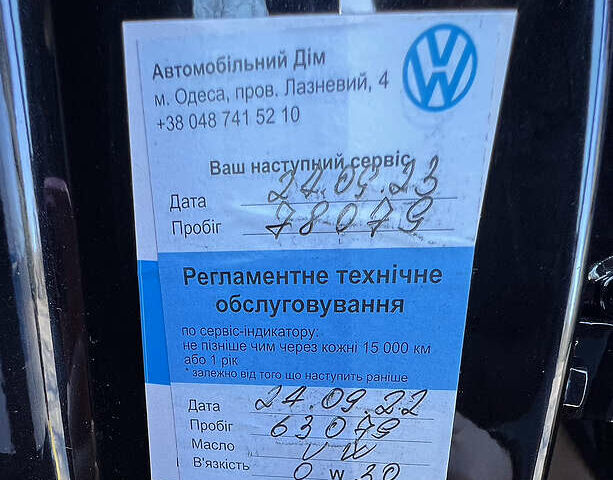 Автомобільний Дім
м. Одеса, пров. Лазневий, 4
+38 048 741 52 10
Ваш наступний сервіс
Дата 24.09.23
Пробіг 78079
Регламентне технічне
обслуговування
по сервіс-індикатору:
не пізніше чим через кожні 15 000 км
або 1 рік
* залежно від того що наступить раніше
Дата 24.09.22
Пробіг 63079
Масло VW
В'язкість 0 w 30